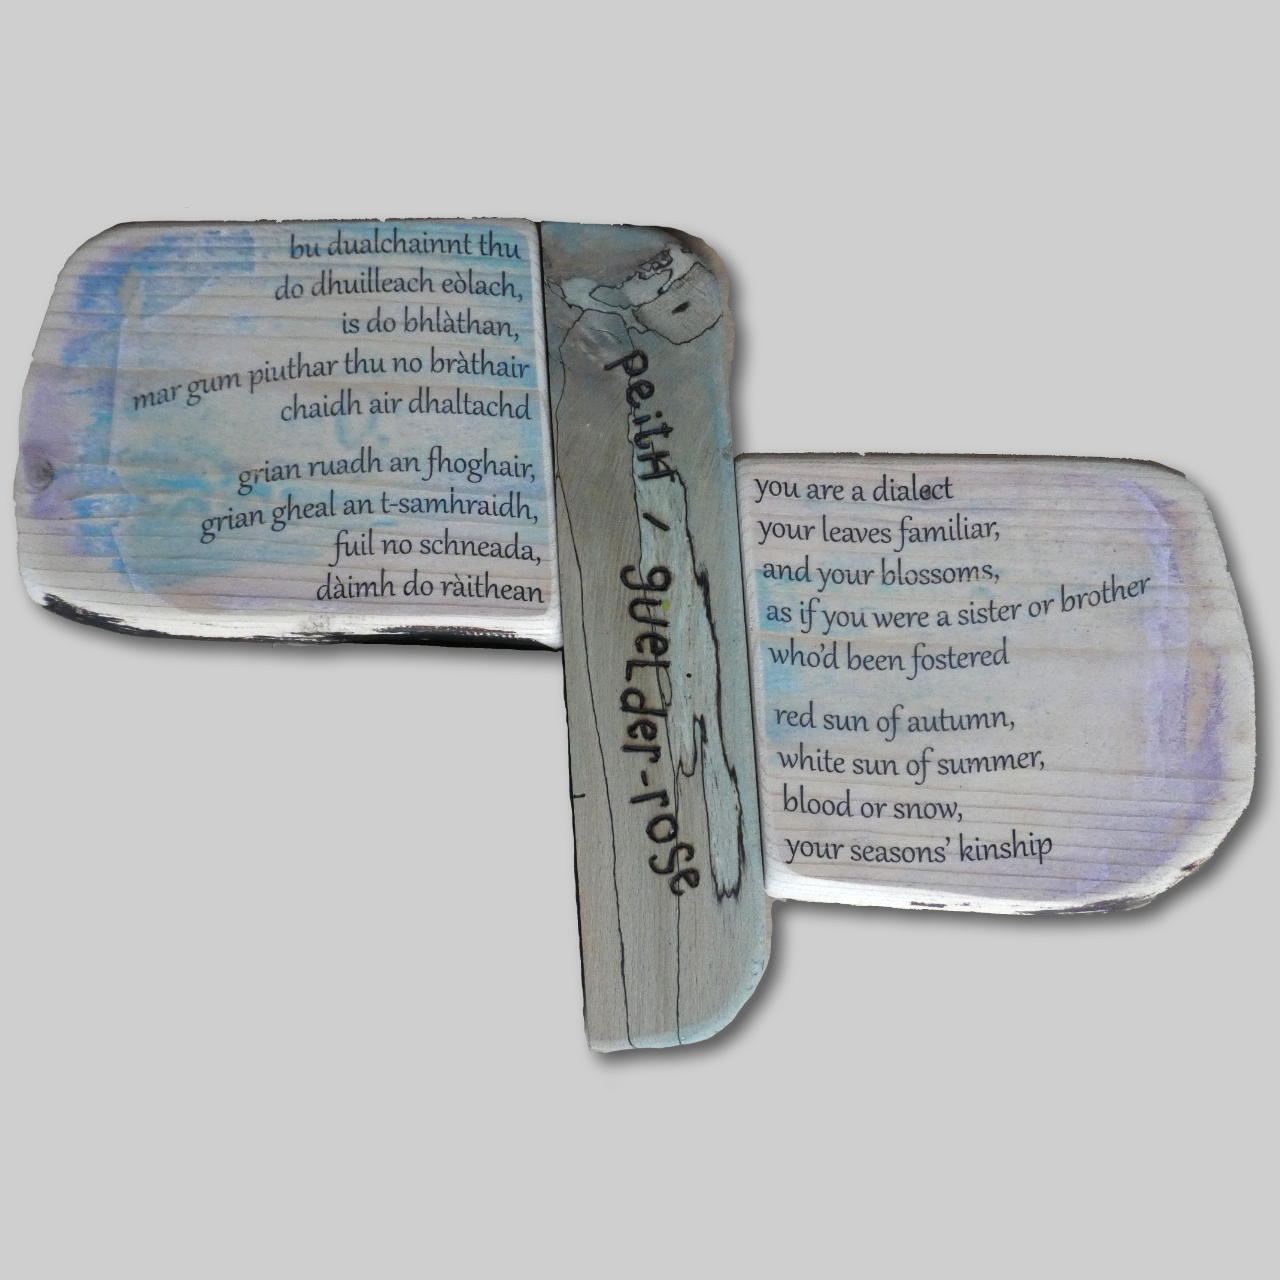 bu dualchainnt thu
do dhuilleach eòlach,
is do bhlàthan,
mar gum piuthar thu no bràthair
chaidh air dhaltachd
grian ruadh an fhoghair,
grian gheal an t-samhraidh,
fuil no schneada,
dàimh do ràithean
peith / guelder-rose
you are a dialect
your leaves familiar,
and your blossoms,
as if you were a sister or brother
who'd been fostered
red sun of autumn,
white sun of summer,
blood or snow,
your seasons' kinship